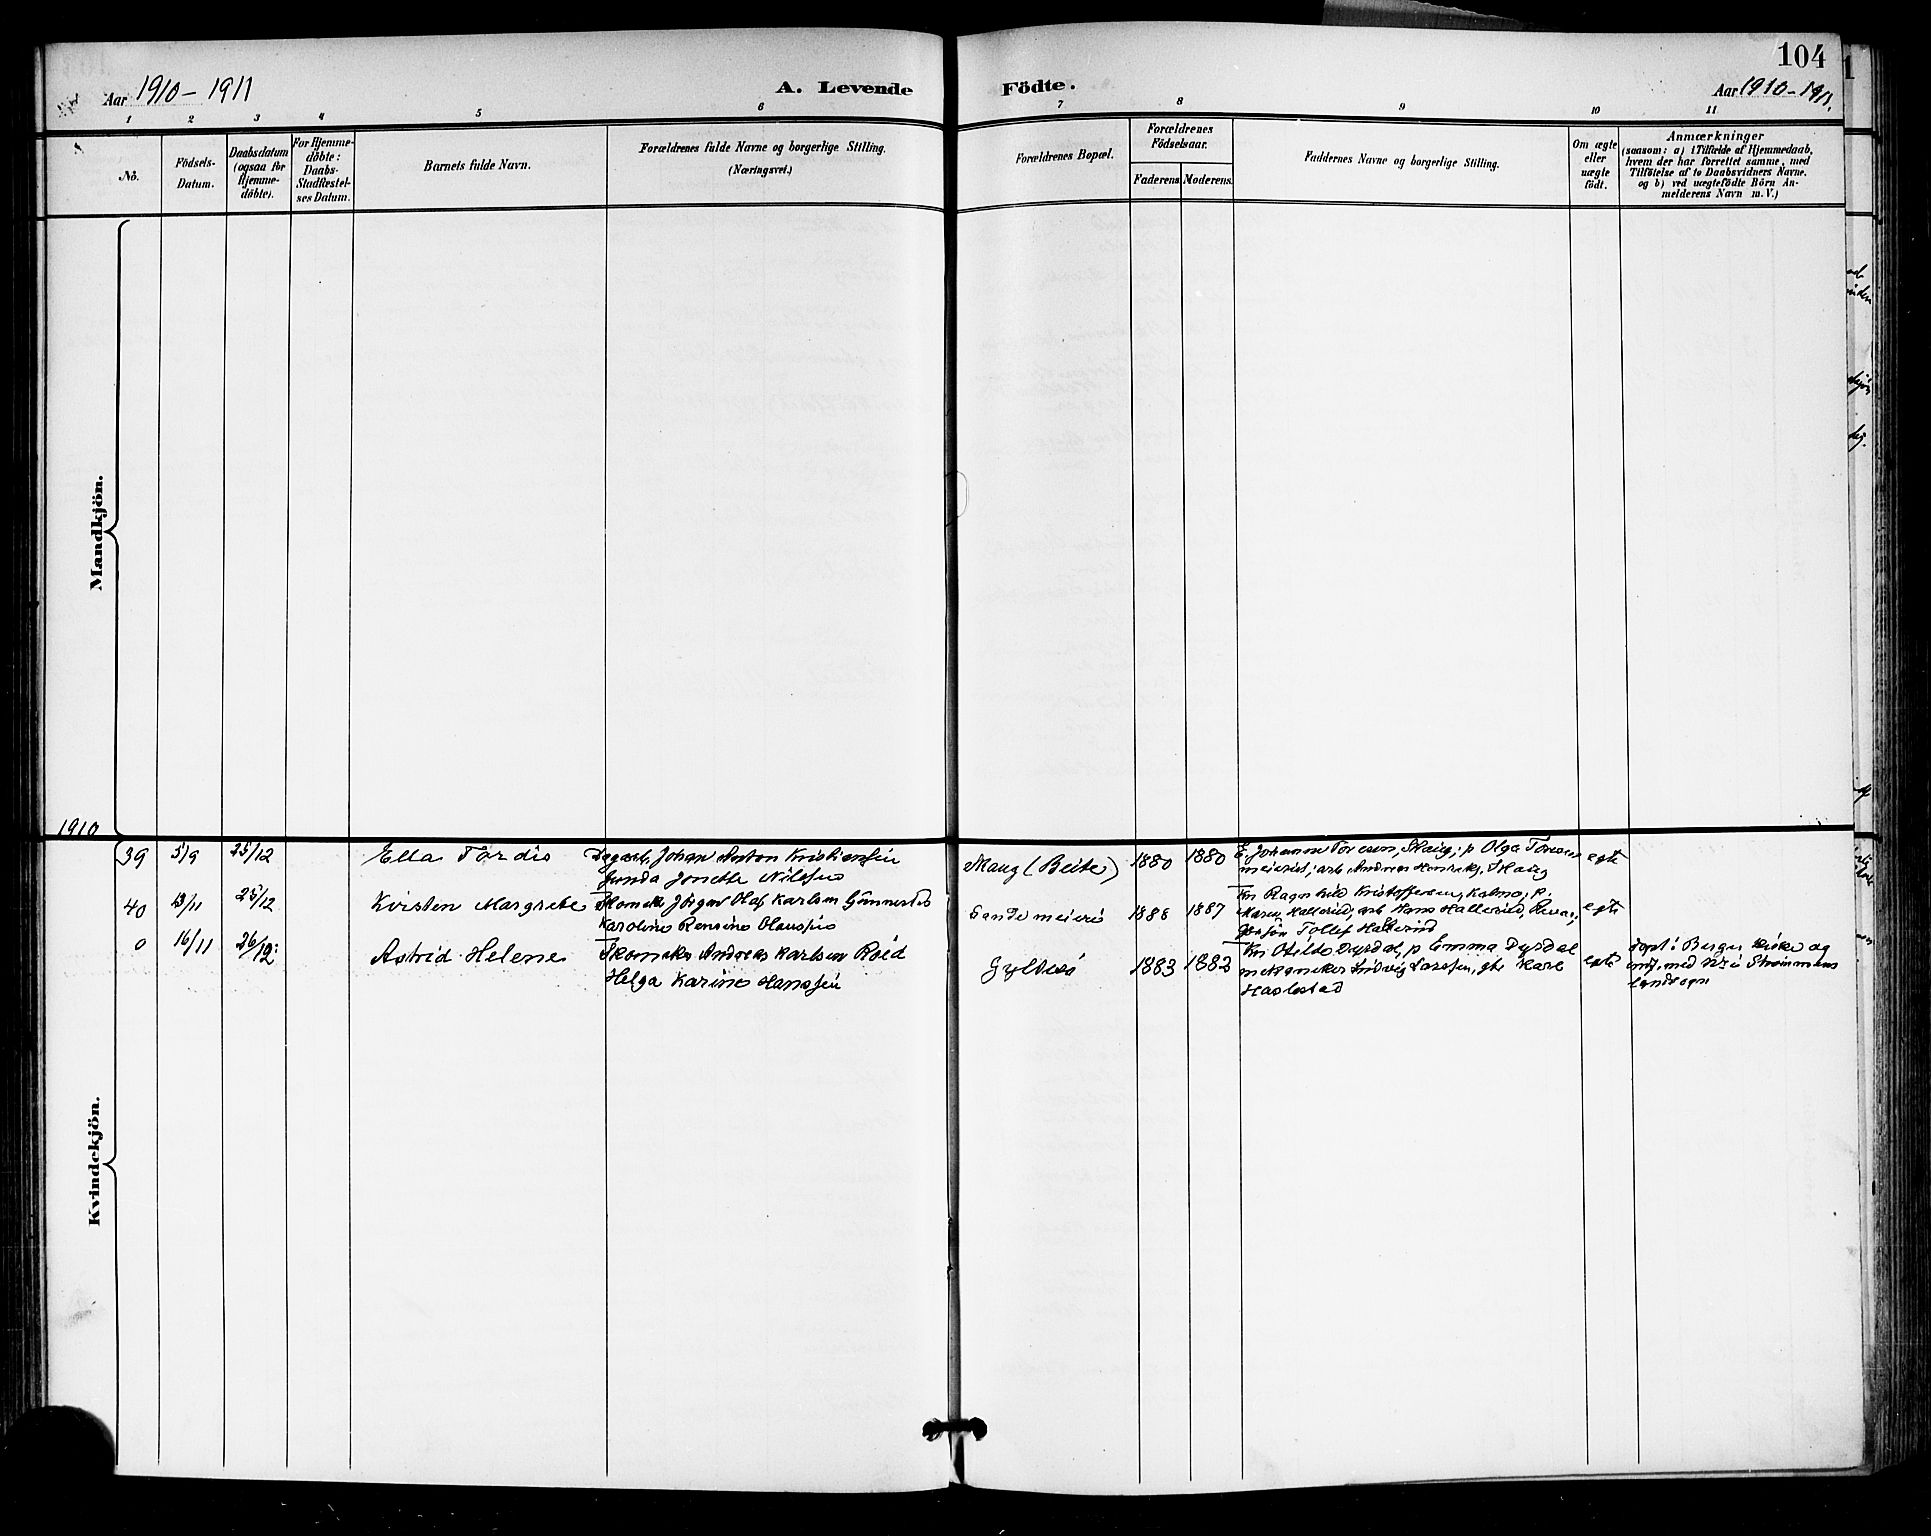 104
Aar 1910-1911
A. Levende
Födte.
Aar 1910-1911.
1 2 3 4 5 6 7 8 9 10 11
Nô.
Födsels-
Datum.
Daabsdatum
(ogsaa for
Hjemme-
döbte).
For Hjemme-
döbte:
Daabs-
Stadfæstel-
ses Datum.
Barnets fulde Navn.
Forældrenes fulde Navne og borgerlige Stilling.
(Næringsvei.)
Forældrenes Bopæl.
Forældrenes
Födselsaar.
Faderens.
Moderens.
Faddernes Navne og borgerlige Stilling.
Om ægte
eller
uægte
født.
Anmærkninger
(saasom: a) i Tilfælde af Hjemmedaab,
hvem der har forrettet samme, med
Tilföielse af to Daabsvidners Navne.
og b) ved uægtefödte Börn An-
melderens Navn m. V.)
Mandkjön.
1910
Kvindekjön.
39 5/9 25/12 Ella Tordis
Johan Anton Kristiensen
Jonette Nilsen
Maug (Beite) 1880 1880
Johanne Toresen, Skaug; p Olga Toresen
meierist; arb Andreas Henriks, Skaug
egte
40 13/11 25/12 Kristen Margrete
Jörgen Olaf Karlsen Gunnestad
Karoline Rensine Olausen
Sande meieri 1888 1887
Ragnhild Kristoffersen, Kolmo, p.
Maren Hallerud, arb Hans Hallerud,
Tollef Hallerud
egte
0 16/11 26/12 Astrid Helene
Skomaker Andreas Karlsen Röed
Helga Karine Hanssen
Gyltesö 1883 1882
Km Otilde Dyrdal, p Emma Dyrdal
Ludvig Larssen, gbr Karl
Haslestad
egte
döpt i Berger kirke og
indf. med N: i Strömmens
landsogn